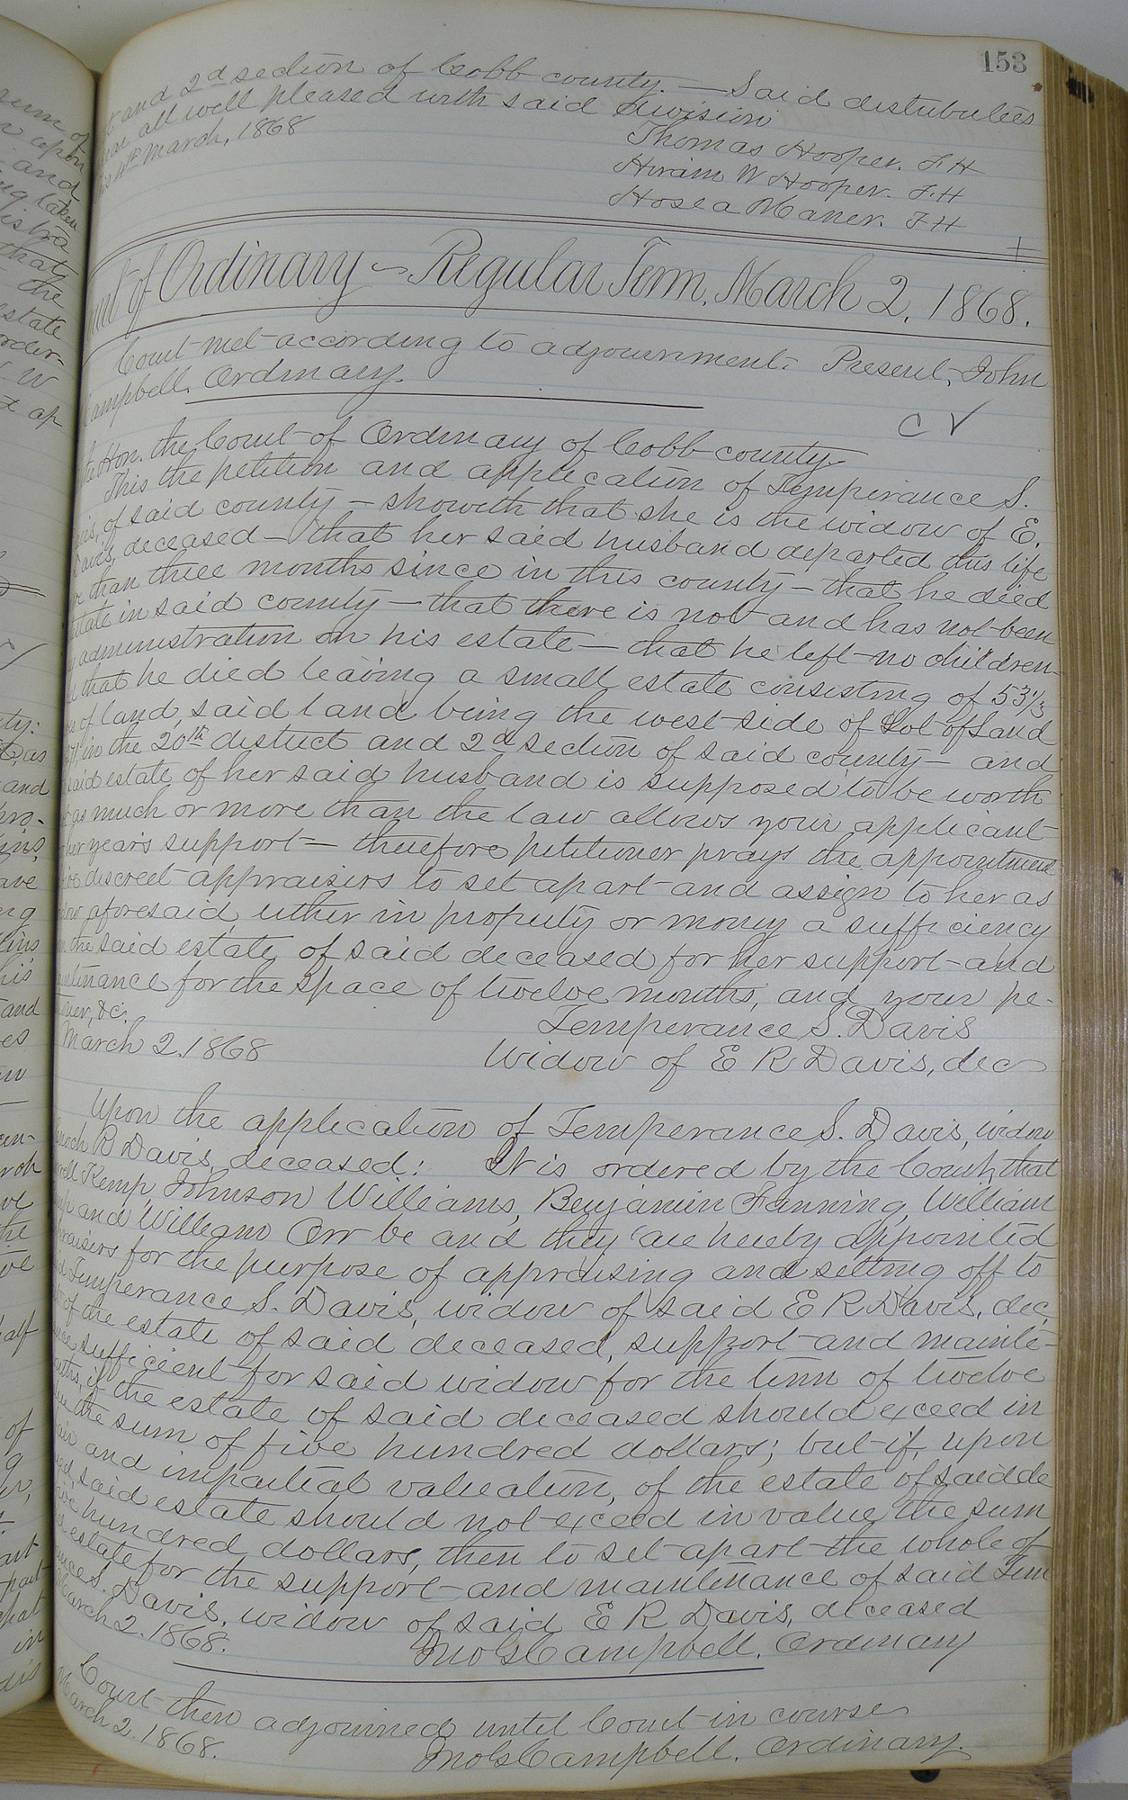 153
and 2d section of Cobb county. — Said distributees
are all well pleased with said division
4th March, 1868
Thomas Hooper. F. H
Hiram W Hooper. F. H
Hosea Maner. F H
of Ordinary ~ Regular Term, March 2, 1868.
Court met according to adjournment. Present, John
Campbell, Ordinary.
C V
Hon. the Court of Ordinary of Cobb county
This the petition and application of Temperance S.
of said county — showeth that she is the widow of E.
deceased — that her said husband departed this life
than three months since in this county — that he died
in said county — that there is not and has not been
administration on his estate — that he left no children
that he died leaving a small estate consisting of 53 1/3
of land, said land being the west side of Lot of Land
in the 20th district and 2d section of said county — and
said estate of her said husband is supposed to be worth
as much or more than the law allows your applicant
her years support — therefore petitioner prays the appointment
discreet appraisers to set apart and assign to her as
aforesaid, either in property or money a sufficiency
the said estate of said deceased for her support and
for the space of twelve months, and your pe-
&c.
Temperance S. Davis
March 2. 1868
Widow of E R Davis, dec
Upon the application of Temperance S. Davis, widow
R Davis, deceased: It is ordered by the Court, that
Kemp, Johnson Williams, Benjamin Fanning, William
and William Orr be and they are hereby appointed
for the purpose of appraising and setting off to
Temperance S. Davis, widow of said E R Davis, dec,
of the estate of said deceased, support and mainte-
sufficient for said widow for the term of twelve
if the estate of said deceased should exceed in
the sum of five hundred dollars; but if, upon
and impartial valuation, of the estate of said de
said estate should not exceed in value the sum
hundred dollars, then to set apart the whole of
estate for the support and maintenance of said Tem
S. Davis, widow of said E R Davis, deceased
March 2. 1868.
Jno G Campbell, Ordinary
Court then adjourned until Court in course
March 2. 1868.
Jno G Campbell. Ordinary.